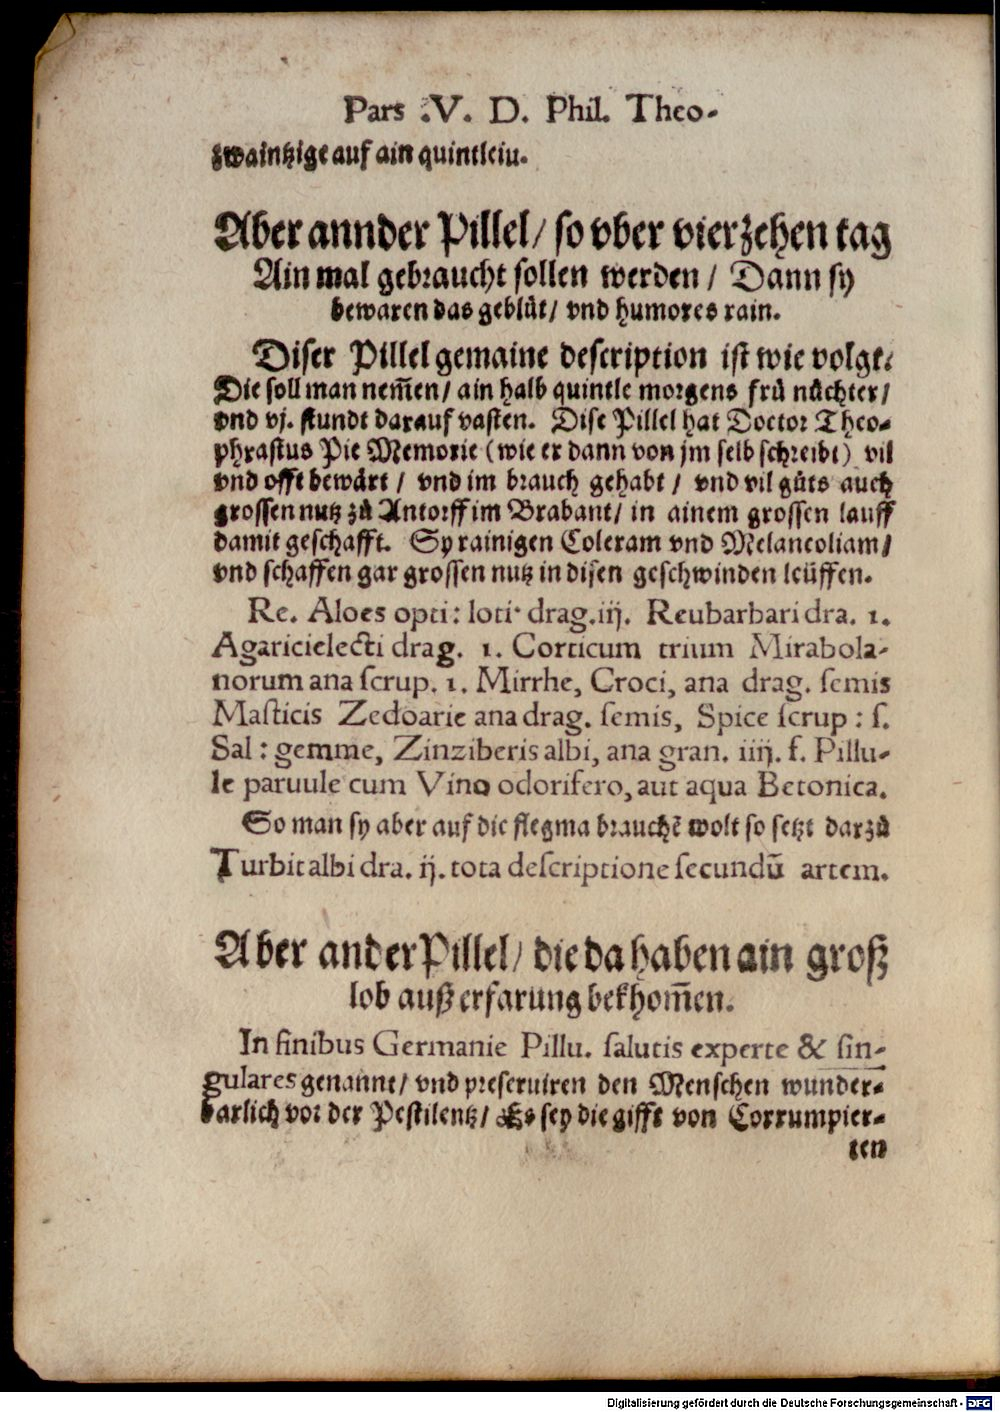 Pars .V. D. Phil. Theo-
zwaintzige auf ain quintleiu.
Aber annder Pillel/ so vber vierzehen tag
Ain mal gebraucht sollen werden/ Dann sy
bewaren das geblůt/ vnd humores rain.
Diser Pillel gemaine description ist wie volgt:
Die soll man nem̃en/ ain halb quintle morgens frů nůchter/
vnd vj. stundt darauf vasten. Dise Pillel hat Doctor Theo-
phrastus Pie Memorie (wie er dann von jm selb schreibt) vil
vnd offt bewårt/ vnd im brauch gehabt/ vnd vil gůts auch
grossen nutz zů Antorff im Brabant/ in ainem grossen lauff
damit geschafft. Sy rainigen Coleram vnd Melancoliam/
vnd schaffen gar grossen nutz in disen geschwinden leüffen.
Re. Aloes opti: loti· drag.iij. Reubarbari dra. 1.
Agarici electi drag. 1. Corticum trium Mirabola-
norum ana scrup. 1. Mirrhe, Croci, ana drag. semis
Masticis Zedoarie ana drag. semis, Spice scrup: s.
Sal: gemme, Zinziberis albi, ana gran. iiij. f. Pillu-
le paruule cum Vino odorifero, aut aqua Betonica.
So man sy aber auf die flegma brauchē wolt so setzt darzů
Turbit albi dra. ij. tota descriptione secundū artem.
Aber ander Pillel/ die da haben ain groß
lob auß erfarung bekhom̃en.
In finibus Germanie Pillu. salutis experte & sin-
gulares genannt/ vnd preseruiren den Menschen wunder-
barlich vor der Pestilentz/ Es sey die gifft von Corrumpier-
ten
Digitalisierung gefördert durch die Deutsche Forschungsgemeinschaft - DFG